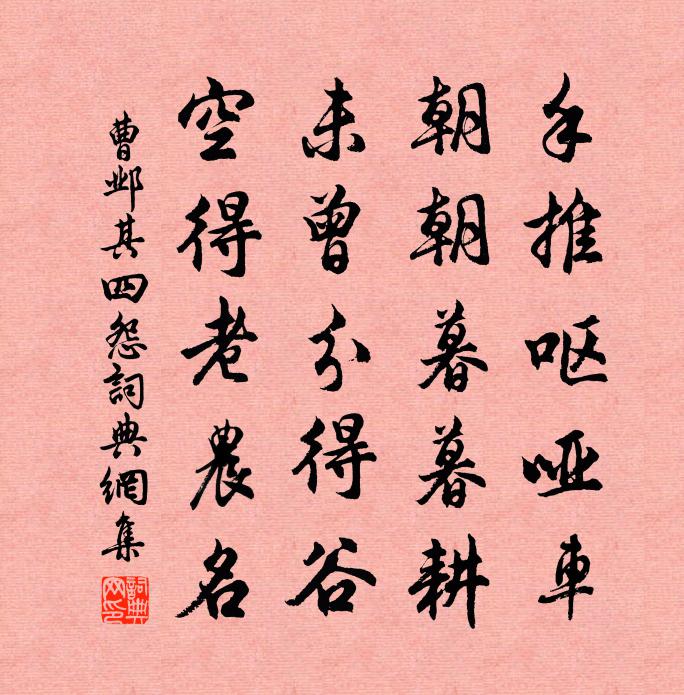 手推呕哑車
朝朝暮暮耕
未曾分得谷
空得老農名
曹邺其四怨詞典網集
詞典網印